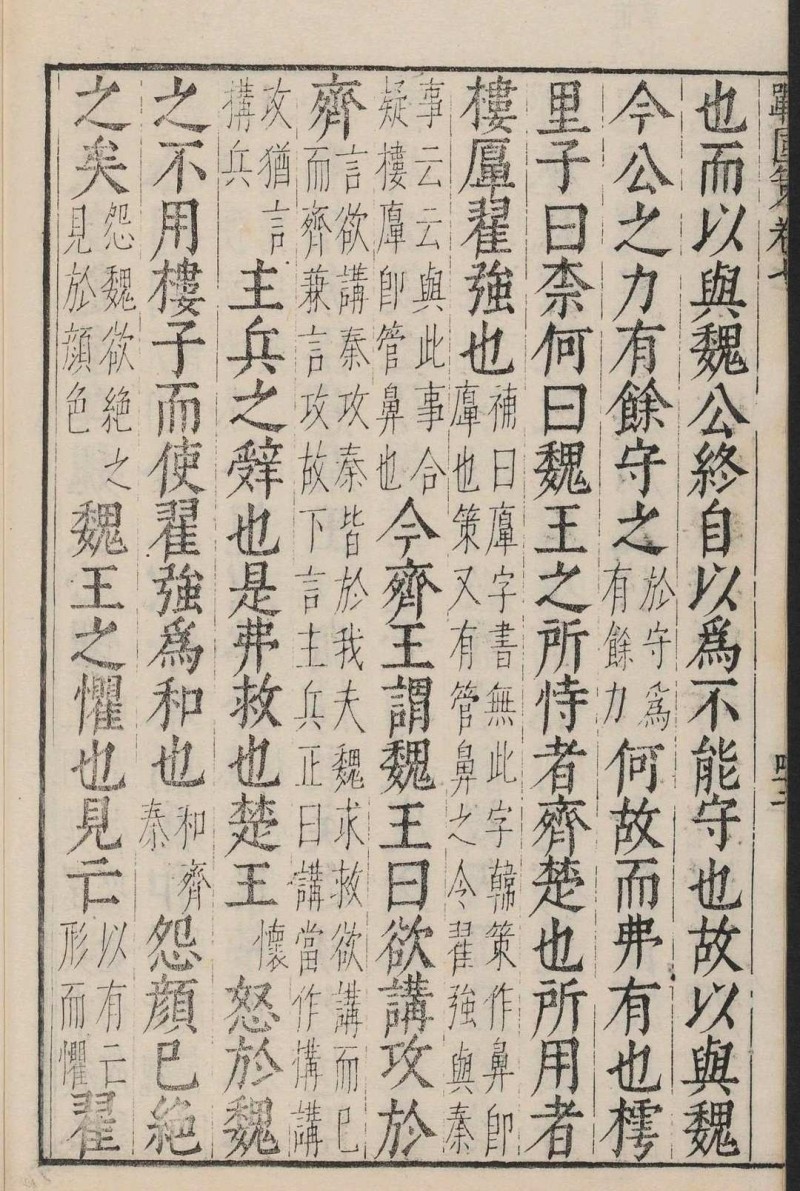 戰國策卷七
也而以與魏公終自以為不能守也故以與魏
今公之力有餘守之於守為有餘力何故而弗有也樗
里子曰柰何曰魏王之所恃者齊楚也所用者
樓翟強也補曰字書無此字韓策作鼻即也策又有管鼻之令翟強與秦
事云云與此事合疑樓即管鼻也今齊王謂魏王曰欲講攻於
齊言欲講秦攻秦皆於我夫魏求救欲講而已而齊兼言攻故下言主兵正曰講當作搆講
攻猶言搆兵主兵之辭也是弗救也楚王懷怒於魏
之不用樓子而使翟強為和也和齊秦怨顏已絕
之矣怨魏欲絕之見於顏色魏王之懼也見亡以有亡形而懼翟